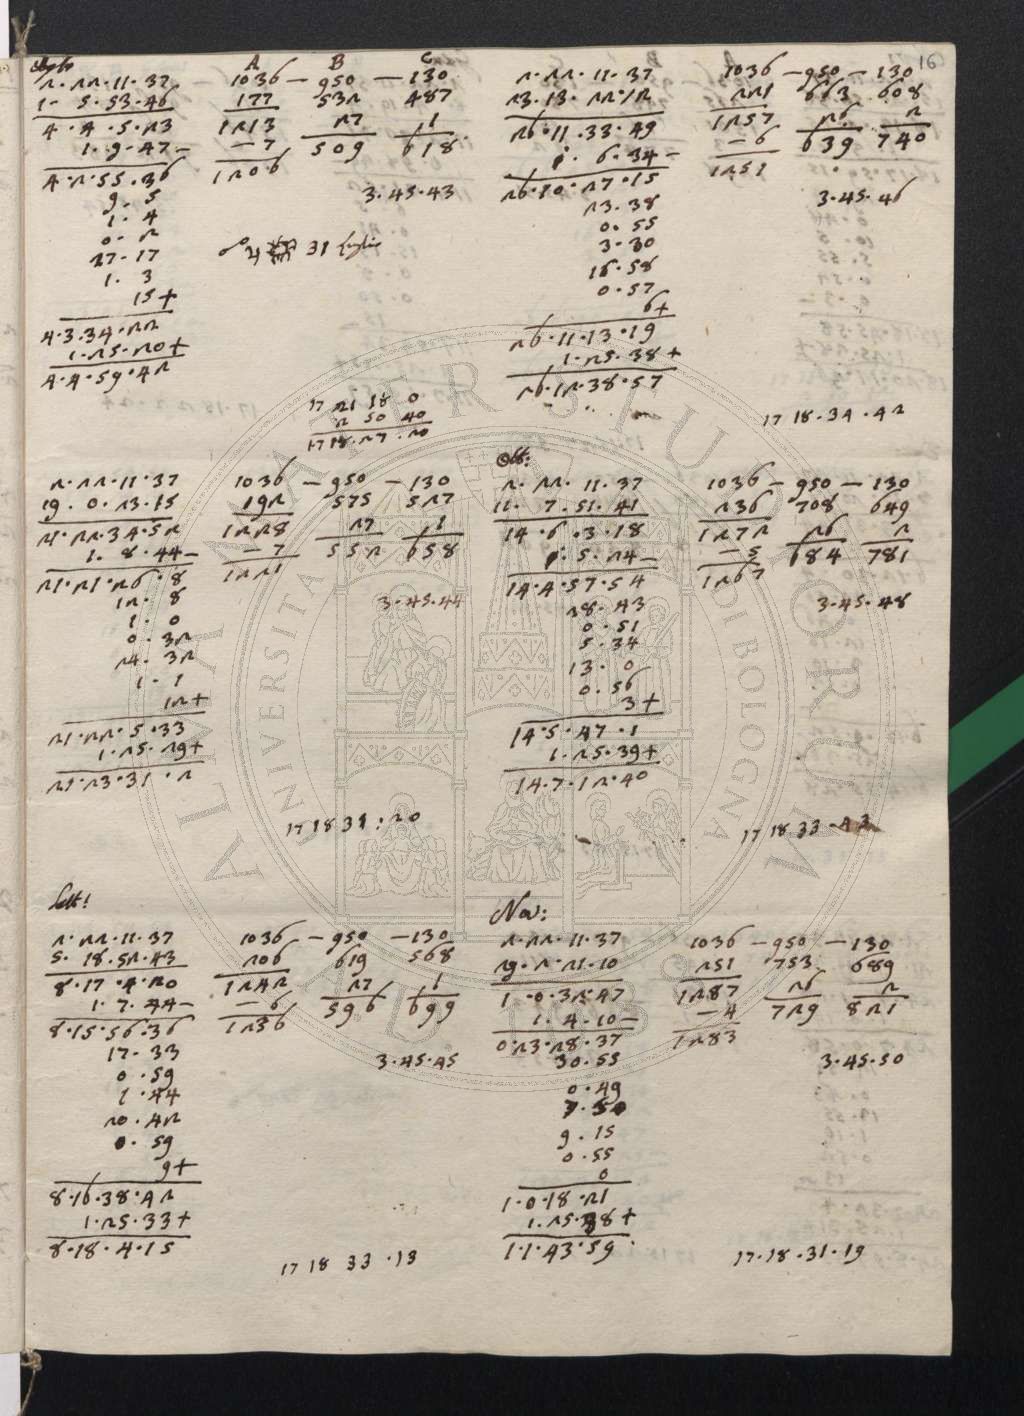 16
A B C
2.22.11.37 1036 – 950 – 130
1- 5.53.46 177 532 487
4.4.5.23 1213 27 1
1.9.47– –7 509 618
4.2.55.36 1206
9.5 3.45.43
1.4
0.2
27.17
1.3
15+
4.3.34.22
1.25.20+
4.4.59.42
17 21 18 0
2 50 40
17 18.27.20
2.22.11.37 1036 – 950 – 130
23.13.22.12 221 663 608
26.11.33.49 1257 26 2
1.6.34– –6 639 740
26.10.27.15 1251
23.38 3.45.46
0.55
3.30
16.58
0.57
6+
26.11.13.19
1.25.38+
26.12.38.57
17 18.34.42
2.22.11.37 1036 – 950 – 130
19.0.23.15 192 575 527
21.22.34.52 1228 27 1
1.8.44– –7 552 658
21.21.26.8 1221
12.8 3.45.44
1.0
0.32
24.32
1.1
12+
21.22.5.33
1.25.29+
21.23.31.2
17 18 31:20
Ott:
2.22.11.37 1036 – 950 – 130
11.7.51.41 236 708 649
14.6.3.18 1272 26 2
1.5.24– –5 684 781
14.4.57.54 1267
28.43 3.45.48
0.51
5.34
13.0
0.56
3+
14.5.47.1
1.25.39+
14.7.12.40
17 18 33.43
Sett:
2.22.11.37 1036 – 950 – 130
5.18.52.43 206 619 568
8.17.4.20 1242 27 1
1.7.44– –6 596 699
8.15.56.36 1236
17.33 3.45.45
0.59
1.44
20.42
0.59
9+
8.16.38.42
1.25.33+
8.18.4.15
17 18 33.13
Nov:
2.22.11.37 1036 – 950 – 130
29.2.21.10 251 753 689
1.0.32.47 1287 26 2
1.4.10– –4 729 821
0.23.28.37 1283
30.55 3.45.50
0.49
7.50
9.15
0.55
0
1.0.18.21
1.25.38+
1.1.43.59
17.18.31.19
ALMA MATER STUDIORUM
UNIVERSITÀ DI BOLOGNA